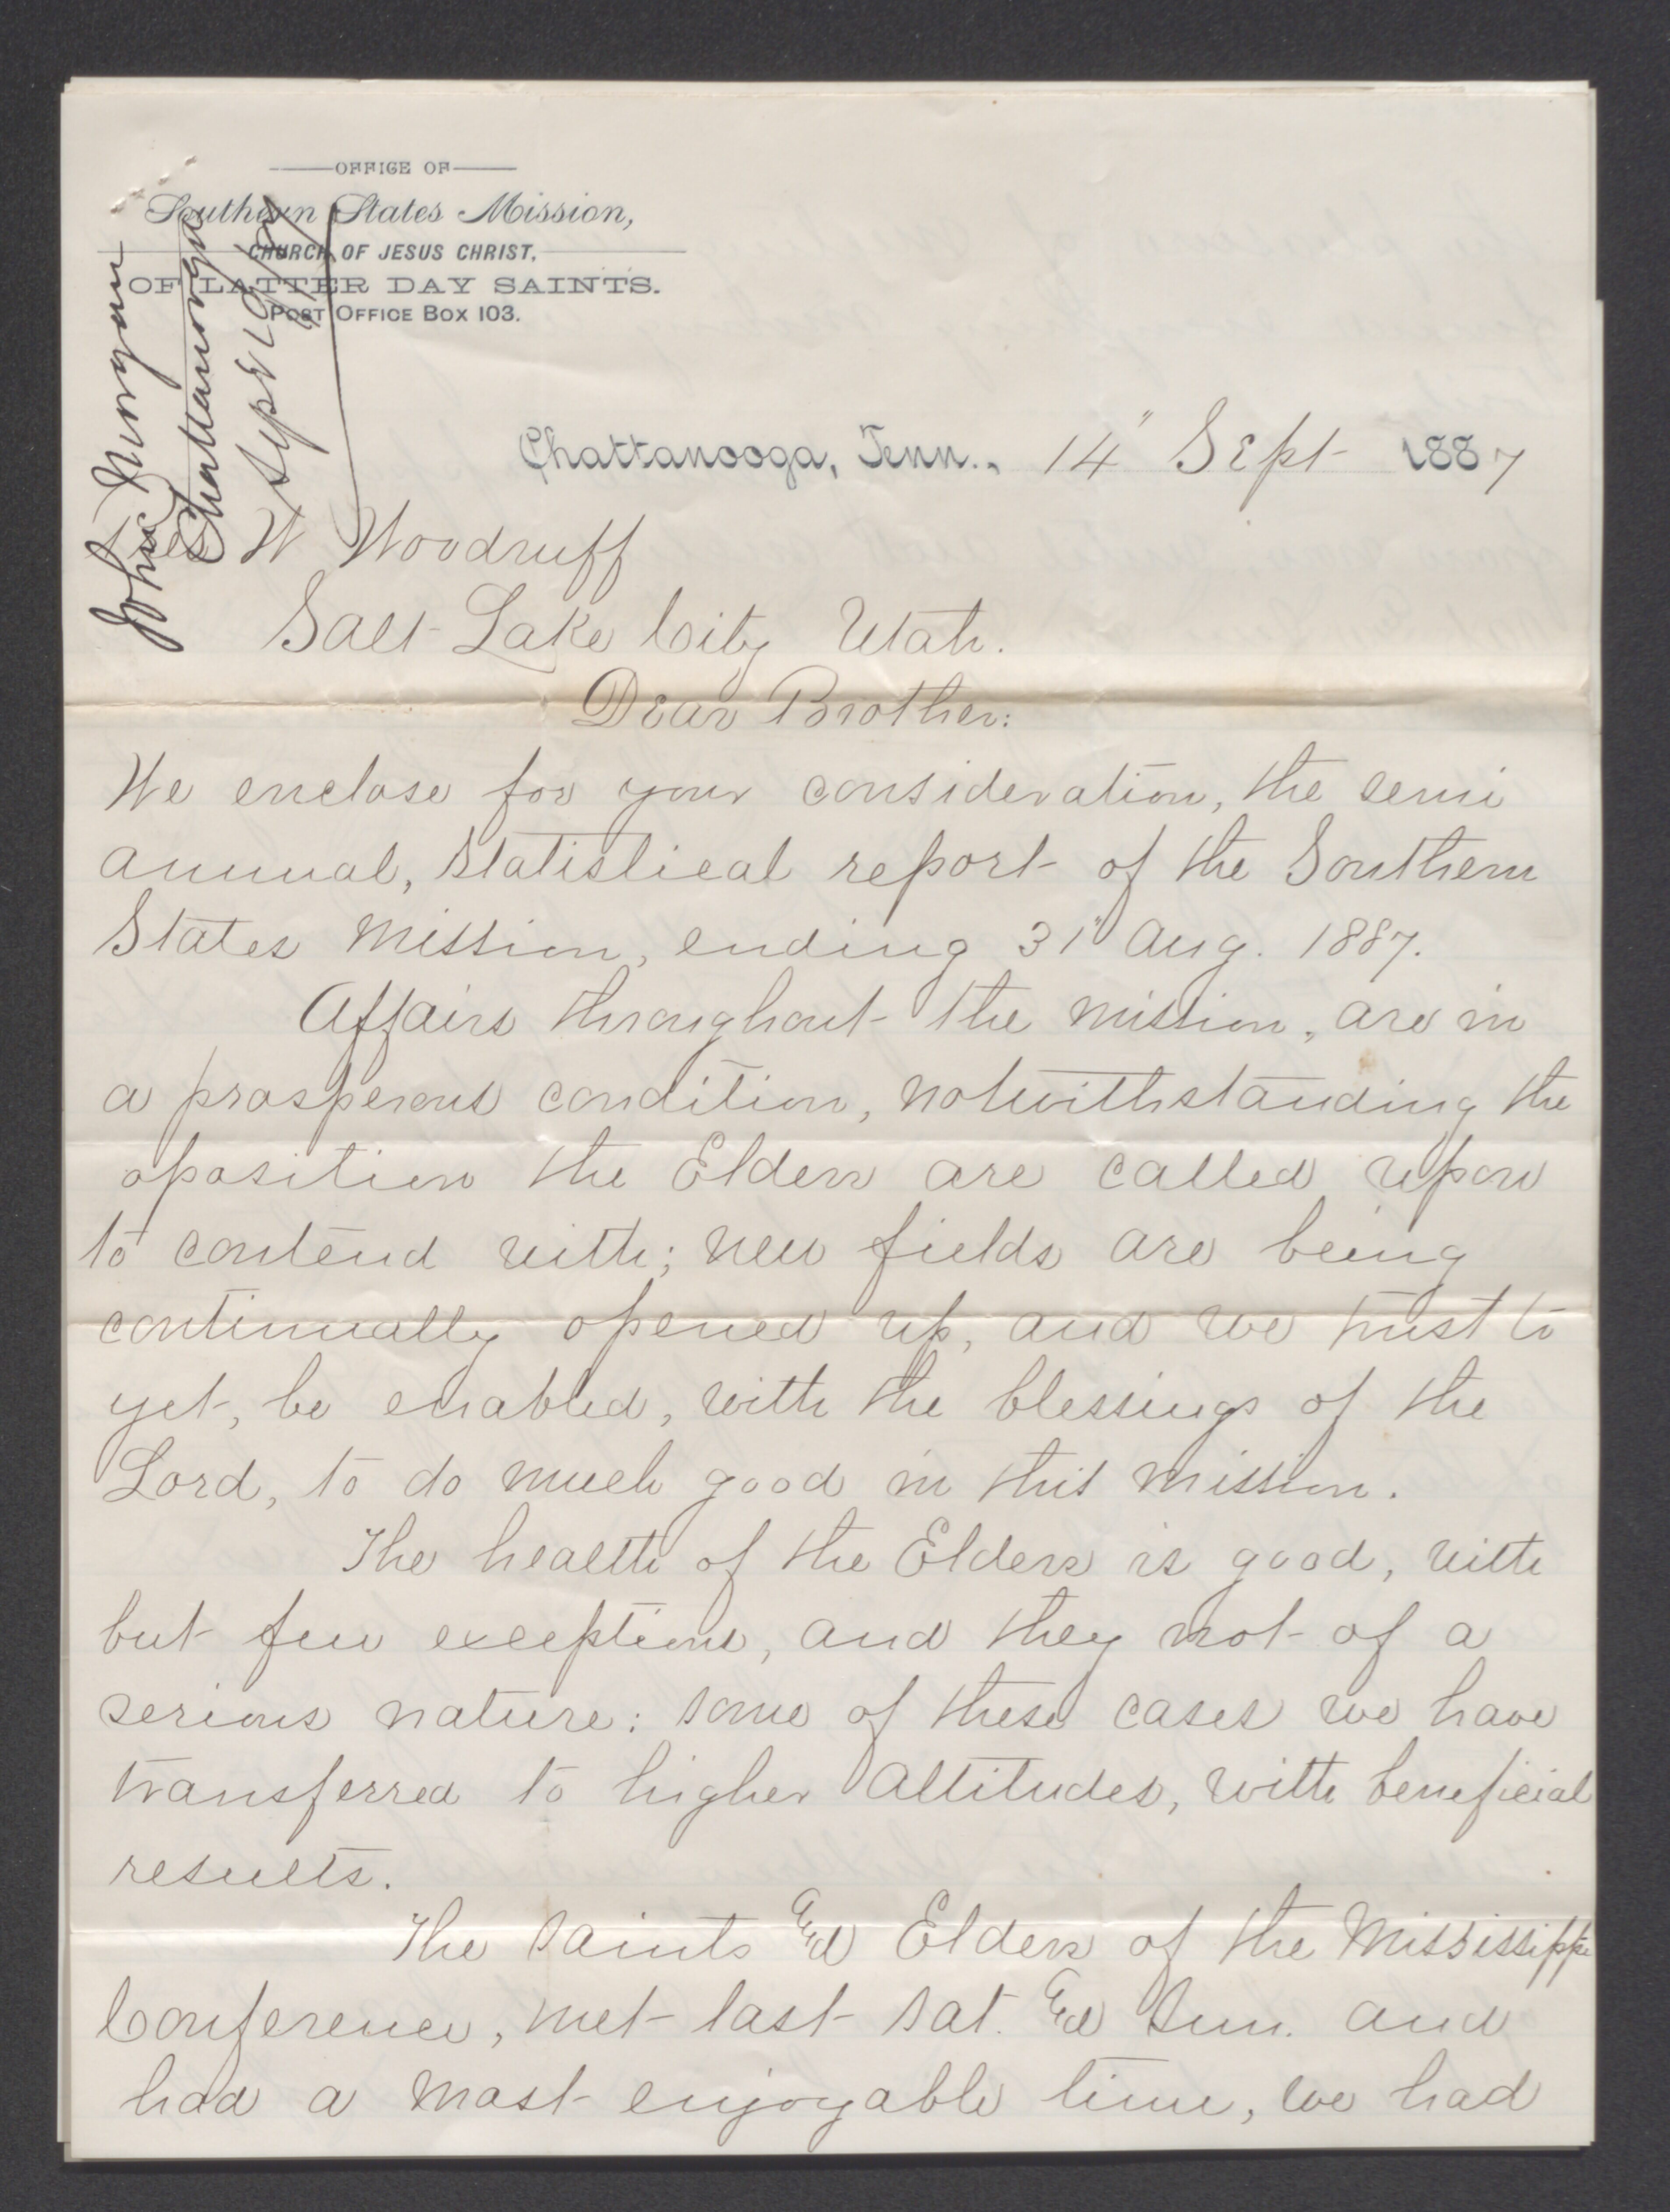 OFFICE OF
Southern States Mission,
CHURCH OF JESUS CHRIST,
OF LATTER DAY SAINTS.
POST OFFICE BOX 103.
John Morgan
Chattanooga
Sept 14/87
Chattanooga, Tenn., 14" Sept 1887
Pres W Woodruff
Salt Lake City Utah.
Dear Brother:
We enclose for your consideration, the semi
annual, statistical report of the Southern
States Mission, ending 31" Aug. 1887.
Affairs throughout the mission, are in
a prosperous condition, notwithstanding the
oposition the Elders are called upon
to contend with; new fields are being
continually opened up, and we trust to
yet, be enabled, with the blessings of the
Lord, to do much good in this mission.
The health of the Elders is good, with
but few exceptions, and they not of a
serious nature: some of these cases we have
transferred to higher altitudes, with beneficial
results.
The saints & Elders of the Mississippi
Conference, met last Sat. & Sun. and
had a most enjoyable time, we had